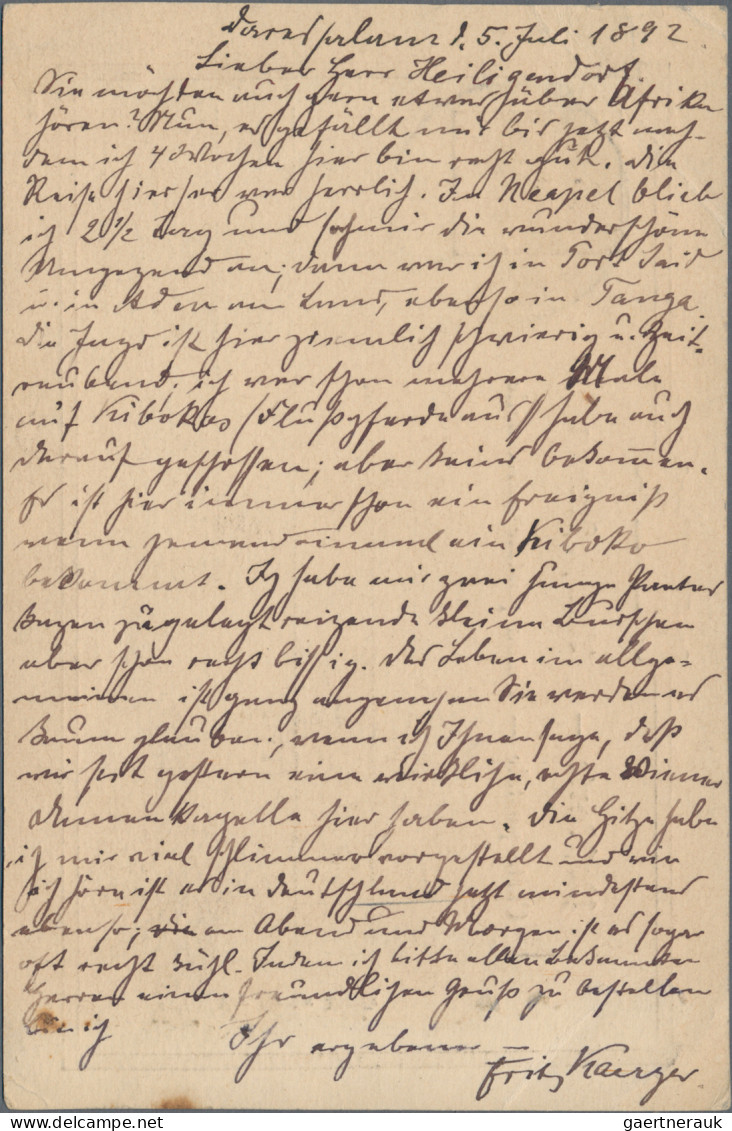 Daressalam d. 5. Juli 1892
Lieber Herr Heiligendorf.
Sie möchten auch gern etwas über Afrika
hören? Nun, es gefällt mir bis jetzt nach-
dem ich 4 Wochen hier bin recht gut. Die
Reise hierher war herrlich. In Neapel blieb
ich 2 1/2 Tag und sah mir die wunderschöne
Umgegend an; dann war ich in Port Said
u. in Aden am Land, ebenso in Tanga.
Die Jagd ist hier ziemlich schwierig u. zeit-
raubend; ich war schon mehrere Male
auf Kibokos (Flußpferde aus) habe auch
darauf geschossen; aber keins bekommen.
Es ist hier immer schon ein Ereigniß
wenn jemand einmal ein Kiboko
bekommt. Ich habe mir zwei junge Panter
katzen zugelegt reizende kleine Burschen
aber schon recht bissig. Das Leben im allge-
meinen ist ganz angenehm Sie werden es
kaum glauben, wenn ich Ihnen sage, daß
wir seit gestern eine wirkliche, echte Wiener
Damenkapelle hier haben. Die Hitze habe
ich mir viel schlimmer vorgestellt und wie
ich höre ist es in Deutschland jetzt mindestens
ebenso; am Abend und Morgen ist es sogar
oft recht kühl. Indem ich bitte allen bekannten
Herren einen freundlichen Gruß zu bestellen
bin ich Ihr ergebener
Fritz Kaerger
gaertnerauk